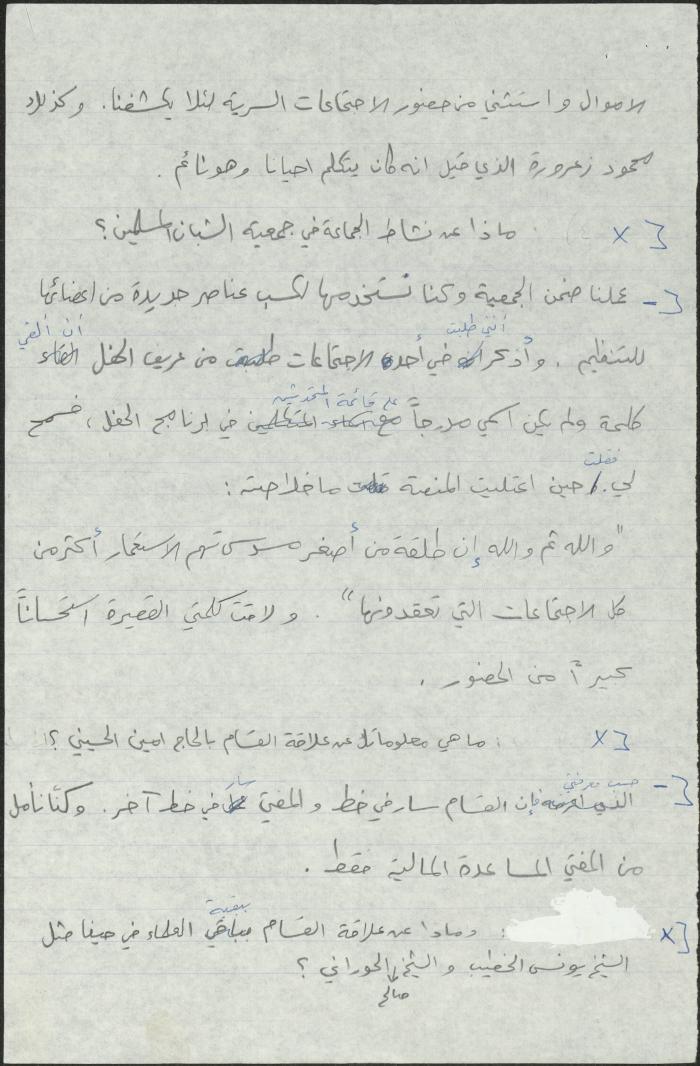 الاموال واستثني من حضور الاجتماعات السرية لئلا يكشفنا. وكذلك
محمود زعرورة الذي قيل انه كان يتكلم احيانا وهو نائم.
x ماذا عن نشاط الجماعة في جمعية الشبان المسلمين؟
- عملنا ضمن الجمعية وكنا نستخدمها لكسب عناصر جديدة من اعضائها
أنني طلبت أن ألقي
للتنظيم. وأذكر في أحد الاجتماعات طلبت من عريف الحفل القاء
على قائمة المتحدثين
كلمة ولم يكن اسمي مدرجاً مع اسماء المتكلمين في برنامج الحفل، فسمح
فقلت
لي. حين اعتليت المنصة قلت ما خلاصته:
"والله ثم والله إن طلقة من أصغر مسدس تهم الاستعمار أكثر من
كل الاجتماعات التي تعقدونها". ولاقت كلمتي القصيرة استحساناً
كبيراً من الحضور.
x : ما هي معلوماتك عن علاقة القسام بالحاج امين الحسيني؟
حسب معرفتي سار
- الذي اعرفه فإن القسام سار في خط والمفتي في خط آخر. وكنا نأمل
من المفتي المساعدة المالية فقط.
ببقية
x : وماذا عن علاقة القسام بباقي العلماء في حيفا مثل
الشيخ يونس الخطيب والشيخ الحوراني؟
صالح